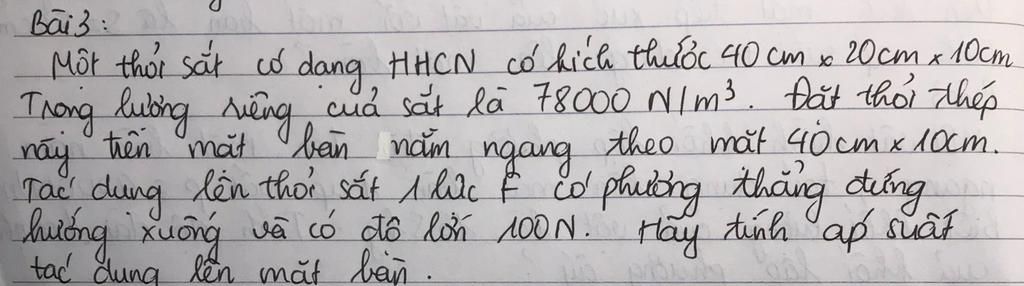 Bài 3:
Một thỏi sắt có dạng HHCN có kích thước 40 cm x 20cm x 10cm
Trọng lượng riêng của sắt là 78000 N/m³. Đặt thỏi thép
này trên mặt bàn nằm ngang theo mặt 40cm x 10cm.
Tác dụng lên thỏi sắt 1 lực F có phương thẳng đứng
hướng xuống và có độ lớn 100N. Hãy tính áp suất
tác dụng lên mặt bàn.